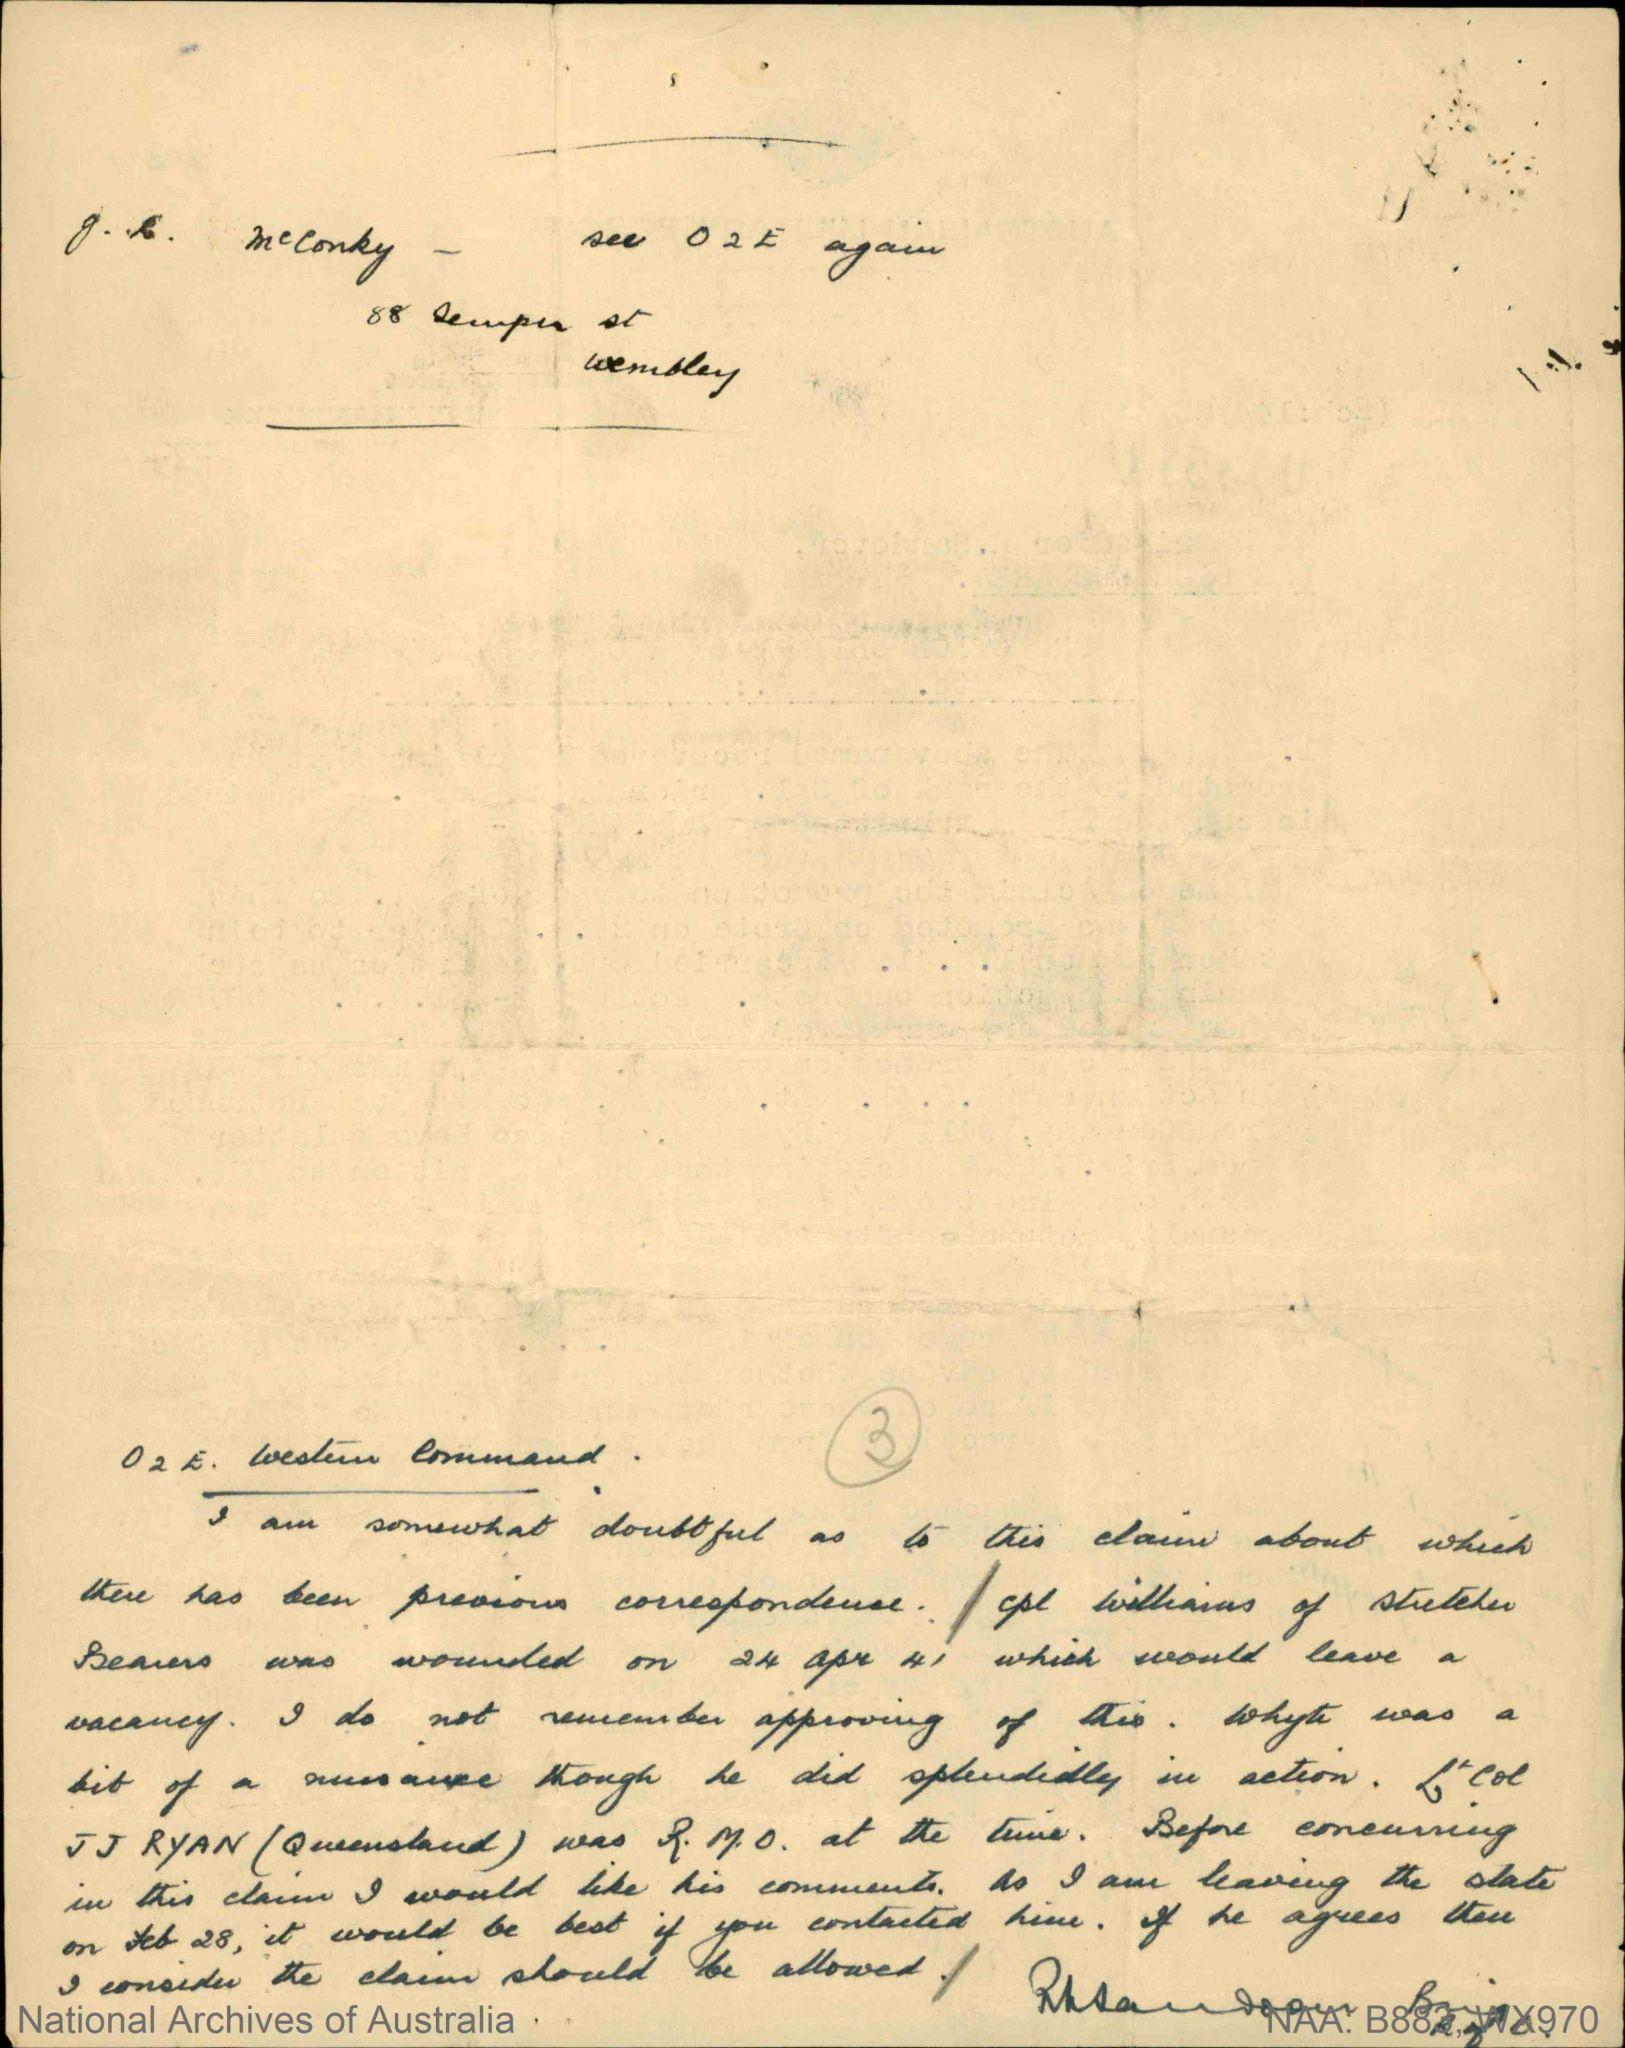 J. R. McConky – see O 2 E again
88 Semper st
Wembley
3
O 2 E. Western Command.
I am somewhat doubtful as to this claim about which
there has been previous correspondence. / Cpl Williams of Stretcher
Bearers was wounded on 24 Apr 41 which would leave a
vacancy. I do not remember approving of this. Whyte was a
bit of a nuisance though he did splendidly in action. Lt Col
J J RYAN (Queensland) was R.M.O. at the time. Before concurring
in this claim I would like his comments. As I am leaving the state
on Feb 28, it would be best if you contacted him. If he agrees then
I consider the claim should be allowed. /
Brig
National Archives of Australia
NAA: B883, WX970